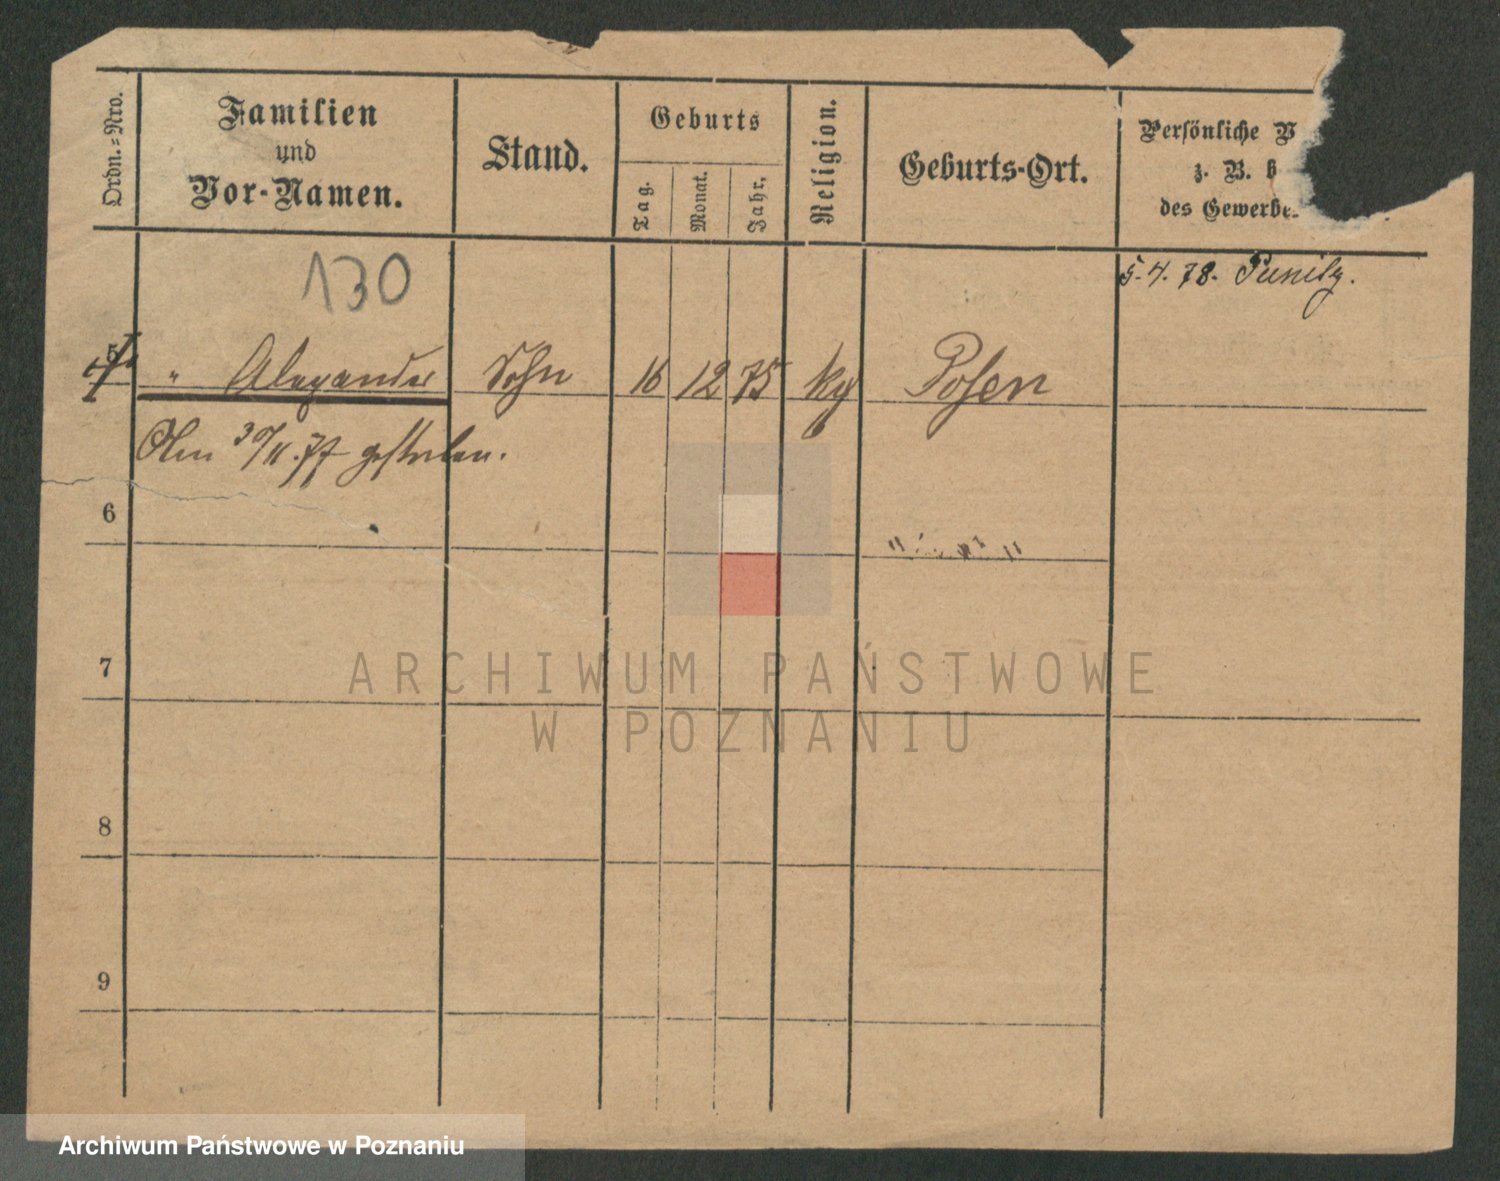 Ordn.-Nro.
Familien
und
Vor-Namen.
Stand.
Geburts
Tag.
Monat.
Jahr.
Religion.
Geburts-Ort.
Persönliche V
z. B. h
des Gewerbe
130
5. 4. 78. Punitz.
5
" Alexander Sohn 16 12 75 kg Posen
Am 30/11. 77 gestorben.
6
7
8
9
ARCHIWUM PAŃSTWOWE
W POZNANIU
Archiwum Państwowe w Poznaniu